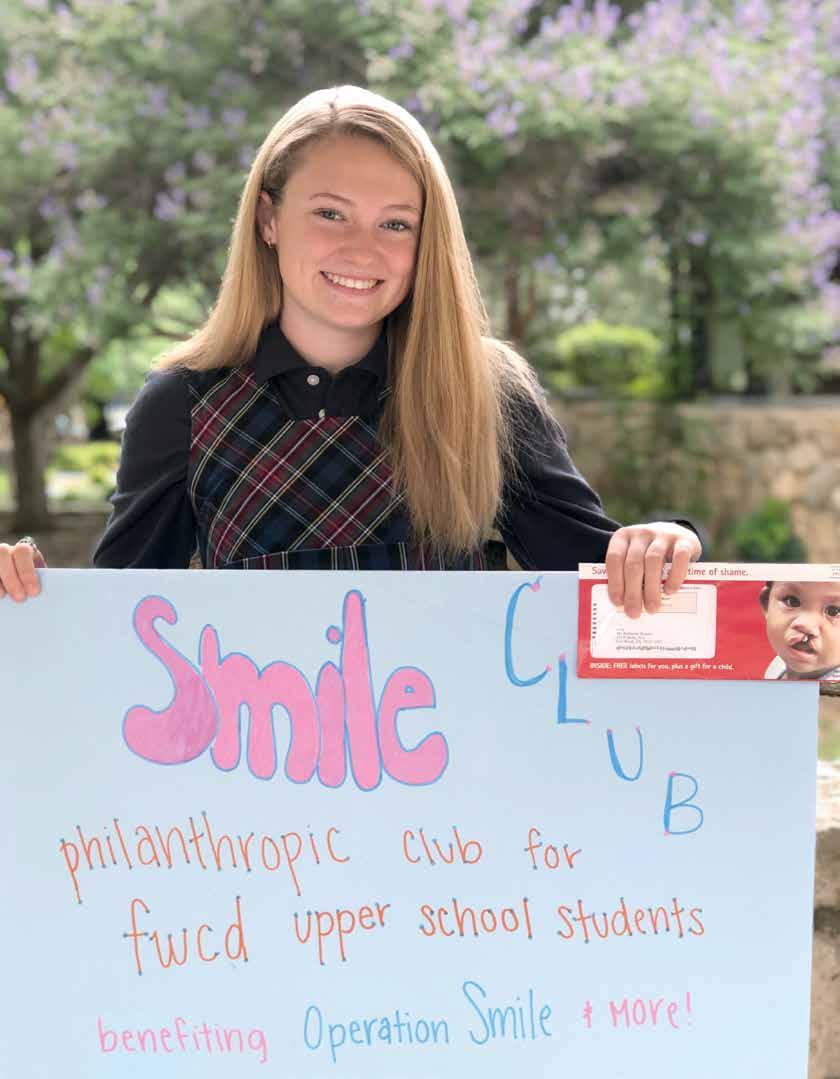 Smile
CLUB
philanthropic club for
fwcd upper school students
benefiting Operation Smile & More!
time of shame.
INSIDE: FREE labels for you, plus a gift for a child.